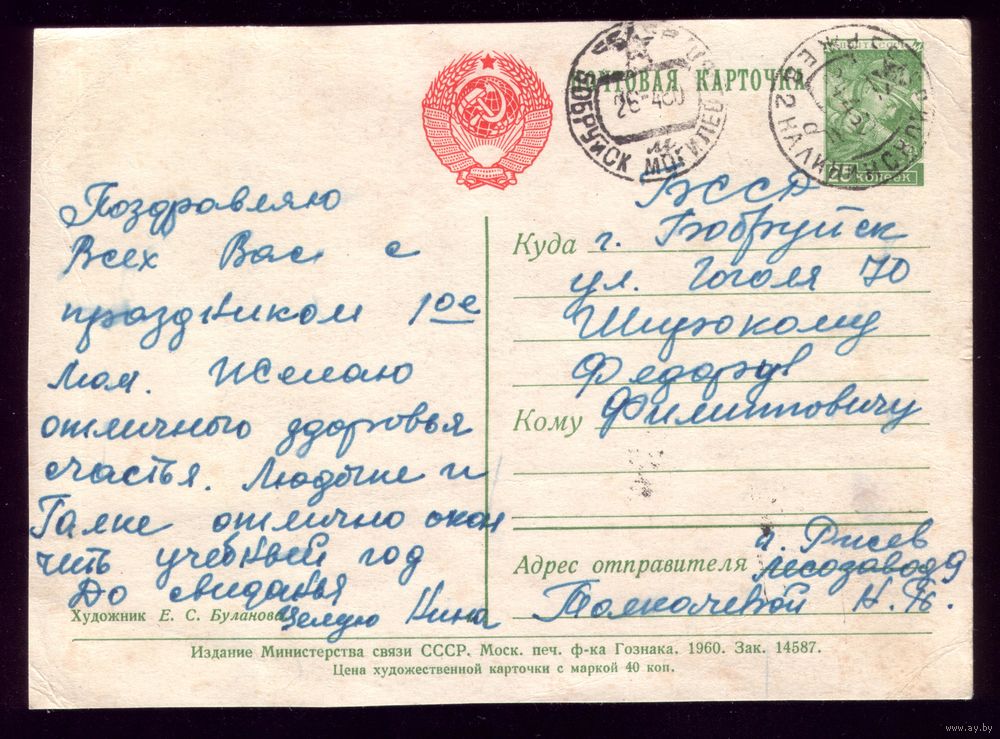 ПОЧТОВАЯ КАРТОЧКА
БОБРУЙСК МОГИЛЕВ
26-460
Поздравляю
Всех Вас с
праздником 1ое
Мая. Желаю
отличного здоровья
счастья. Людочке и
Галке отлично окон
чить учебный год
До свиданья
Целую Нина
Художник Е. С. Буланова
БССР
Куда г. Бобруйск
ул. Гоголя 70
Федору
Кому Филипповичу
г. Ржев
Адрес отправителя Лесозавод 9
Толкачевой Н. Ф.
Издание Министерства связи СССР. Моск. печ. ф-ка Гознака. 1960. Зак. 14587.
Цена художественной карточки с маркой 40 коп.
www.ay.by